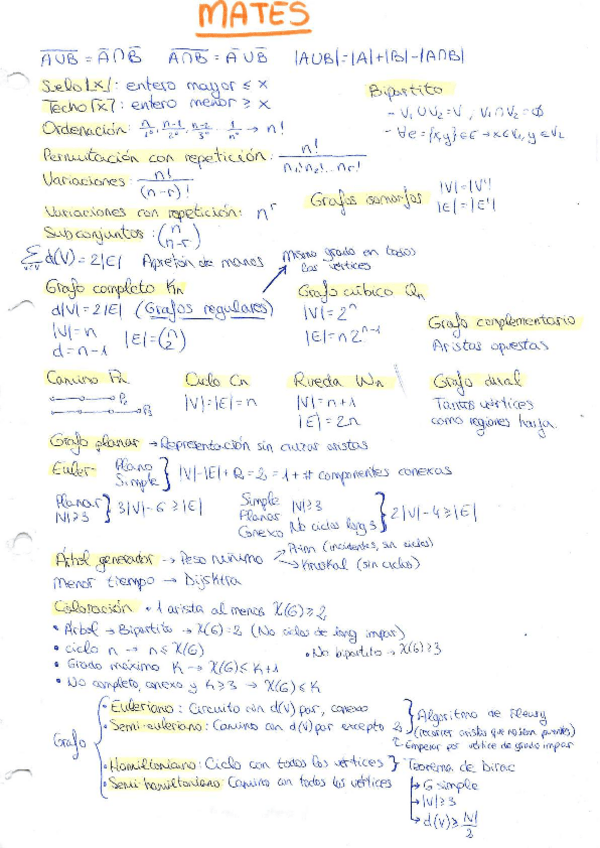 MATES
A∪B = A∩B A∩B = A∪B |A∪B|=|A|+|B|-|A∩B|
Suelo ⌊x⌋: entero mayor ≤ x
Techo ⌈x⌉: entero menor ≥ x
Bipartito
- V₁∪V₂=V, V₁∩V₂=Ø
- ∀e={x,y}∈E→x∈V₁, y∈V₂
Ordenación: n/1º · n-1/2º · n-2/3º ... 1/nº → n!
Permutación con repetición: n!/n₁!n₂!...nᵣ!
Variaciones: n!/(n-r)!
Grafos isomorfos |V|=|V'|
|E|=|E'|
Variaciones con repetición: nʳ
Subconjuntos: (n n-r)
Σ d(V)=2|E| Apretón de manos
v∈V
Mismo grado en todos
los vértices
Grafo completo Kn
d|V|=2|E| (Grafos regulares)
|V|=n
d=n-1
|E|=(n 2)
Grafo cúbico Qn
|V|=2ⁿ
|E|=n2ⁿ⁻¹
Grafo complementario
Aristas opuestas
Camino Pn
P₂
P₃
Ciclo Cn
|V|=|E|=n
Rueda Wn
|V|=n+1
|E|=2n
Grafo dual
Tantos vértices
como regiones haya
Grafo planar → Representación sin cruzar aristas
Euler- Plano
Simple } |V|-|E|+R=2=1+# componentes conexas
Planar
|V|≥3 } 3|V|-6≥|E|
Simple |V|≥3
Planar
Conexo No ciclos long 3 } 2|V|-4≥|E|
Árbol generador → Peso mínimo → Prim (incidentes, sin ciclos)
→ Kruskal (sin ciclos)
Menor tiempo → Dijsktra
Coloración • 1 arista al menos X(G)≥2
• Árbol → Bipartito → X(G)=2 (No ciclos de long impar)
• ciclo n → n≤X(G) • No bipartito → X(G)≥3
• Grado máximo K → X(G)≤K+1
• No completo, conexo y K≥3 → X(G)≤K
Grafo {
• Euleriano: Circuito con d(v) par, conexo
• Semi-euleriano: Camino con d(v) par excepto 2
} Algoritmo de Fleury
(recorrer aristas que no sean puentes)
Empezar por vértice de grado impar
• Hamiltoniano: Ciclo con todos los vértices } Teorema de Dirac
• Semi hamiltoniano: Camino con todos los vértices
→ G simple
→ |V|≥3
→ d(v)≥|V|/2